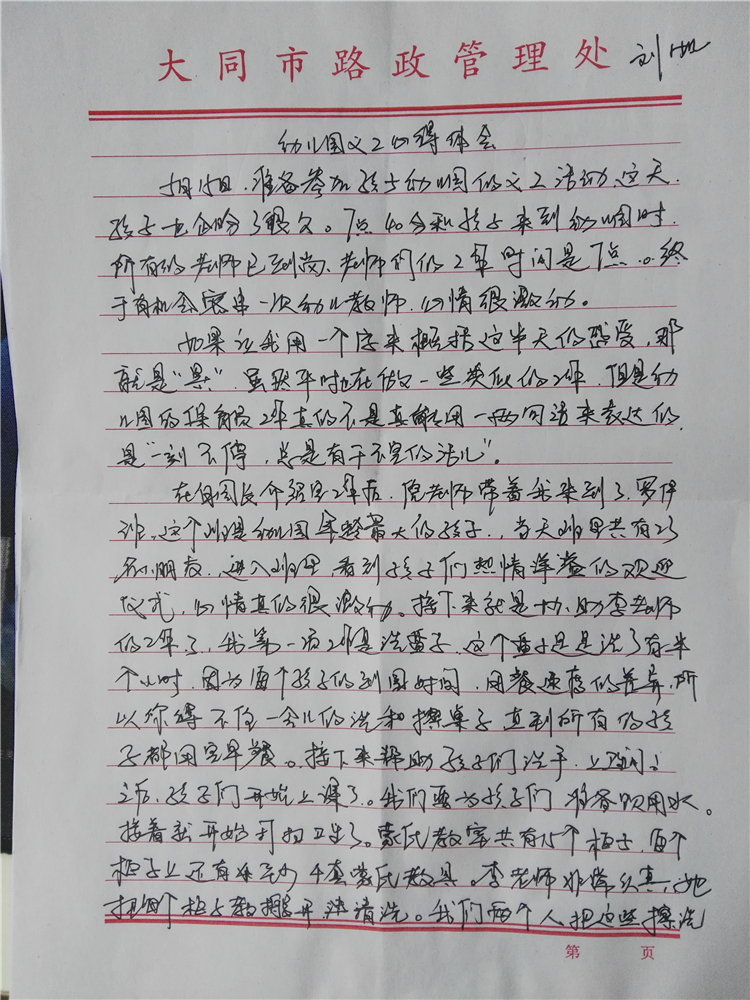 大同市路政管理处
刘
幼儿园义工心得体会
5月15日,准备参加孩子幼儿园的义工活动,这天,
孩子也企盼了很久。7点40分和孩子来到幼儿园时,
所有的老师已到岗,老师们的工作时间是7点。终
于有机会客串一次幼儿教师,心情很激动。
如果让我用一个字来概括这半天的感受,那
就是“累”,虽然平时也在做一些类似的工作,但是幼
儿园的保育员工作真的不是真能用一两句话来表达的,
是“一刻不停,总是有干不完的活儿”。
在白园长介绍完工作后,老师带着我来到了罗伊
班,这个班是幼儿园年龄最大的孩子,当天班里共有23
名小朋友,进入班里,看到孩子们热情洋溢的欢迎
仪式,心情真的很激动。接下来就是协助李老师
的工作了,我第一项工作是洗盘子,这个盘子足足洗了有半
个小时,因为每个孩子的到园时间,用餐速度的差异,所
以你得不住一会儿的洗和擦桌子直到所有的孩
子都用完早餐。接下来帮助孩子们洗手,上
之后,孩子们开始上课了。我们要为孩子们准备饮用水。
接着就开始打扫卫生了。蒙氏教室共有15个柜子,每个
柜子上还有至少4套蒙氏教具。李老师非常认真,她
把每个柜子都挪开来清洗。我们两个人把这些擦洗
第 页